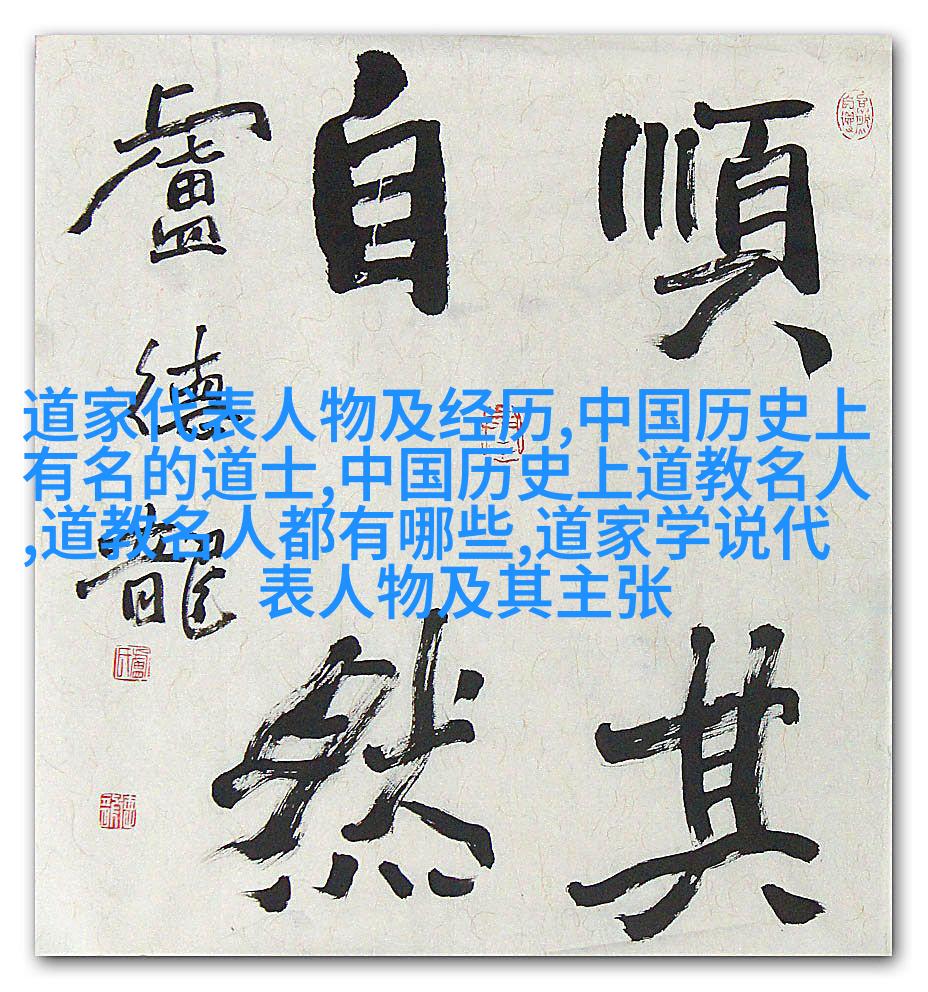 順其
自然
盧德龍
道家代表人物及经历,中国历史上
有名的道士,中国历史上道教名人
,道教名人都有哪些,道家学说代
表人物及其主张